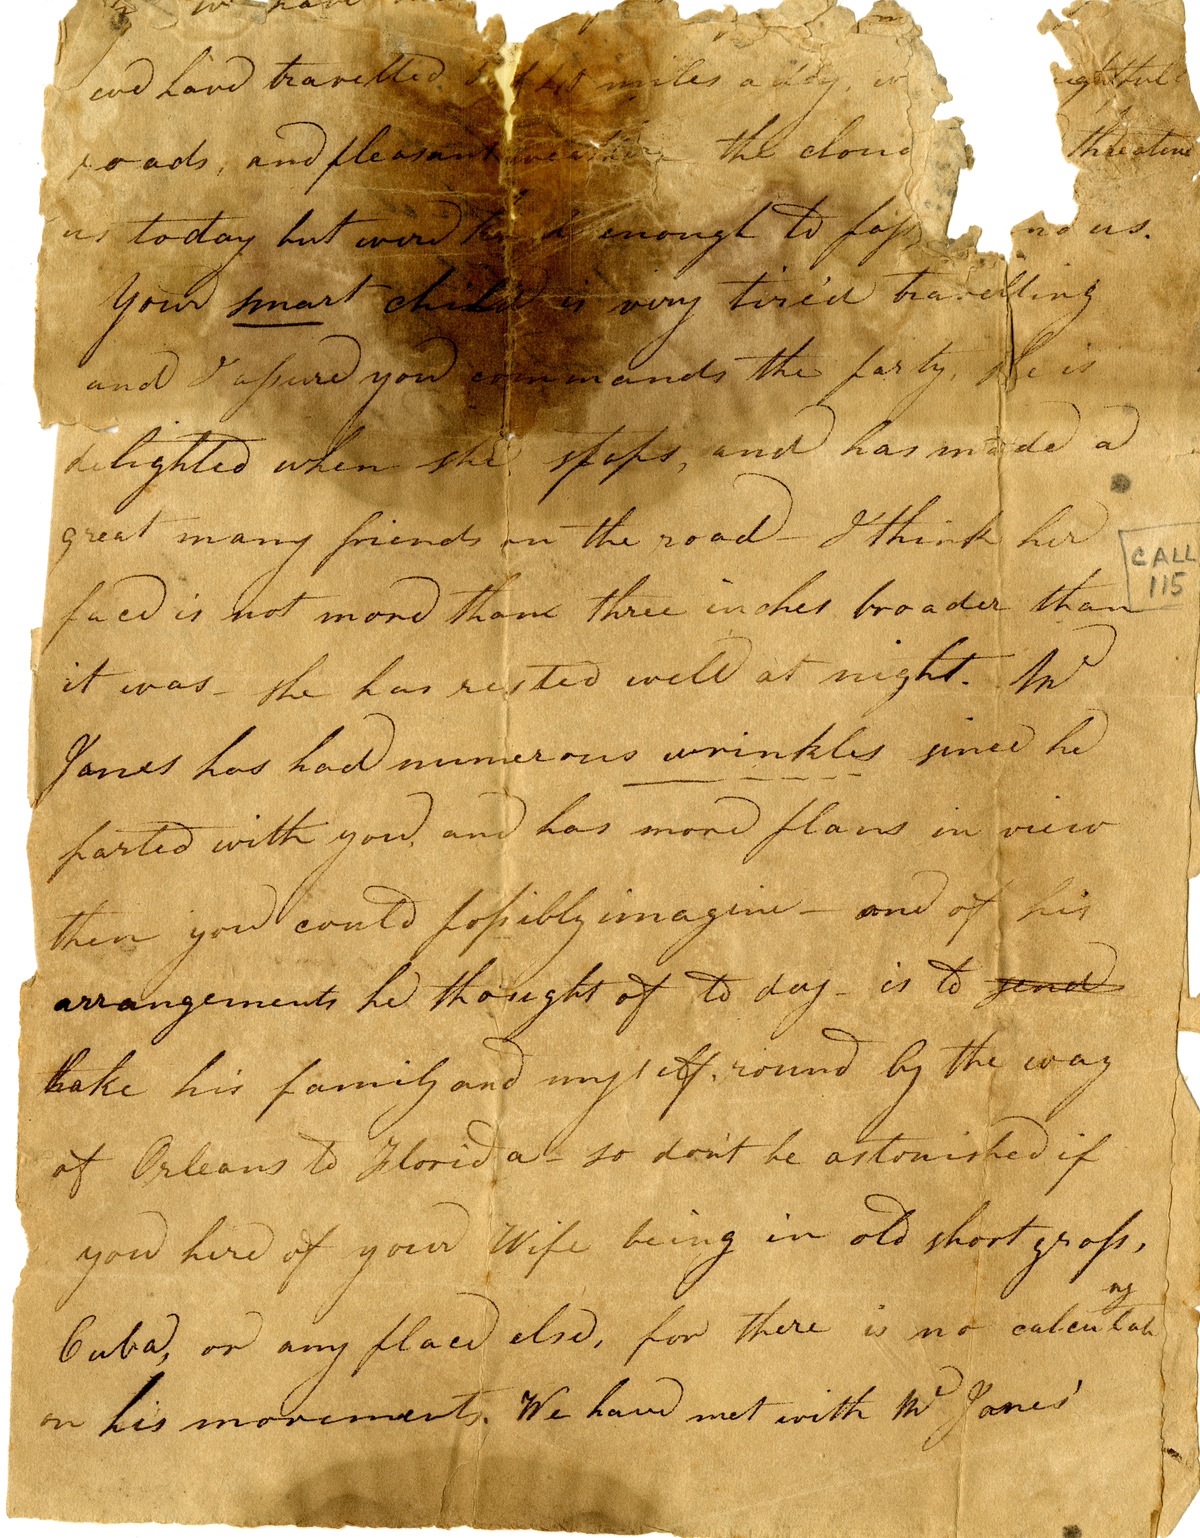 we have
we have travelled miles a day,
roads, and pleasant weather the cloud threatene
us today but were enough to pass us.
Your smart child is very tired travelling
and I assure you commands the party, she is
delighted when she stops, and has made a
great many friends on the road - I think her
face is not more than three inches broader than
it was - she has rested well at night. Mr
Jones has had numerous wrinkles since he
parted with you, and has more plans in view
then you could possibly imagine - one of his
arrangements he thought of to day - is to send
take his family and myself, round by the way
of Orleans to Florida - so don't be astonished if
you here of your Wife being in old short grass,
Cuba, or any place else, for there is no calculatng
on his movements. We have met with Mr Jones'
CALL
115